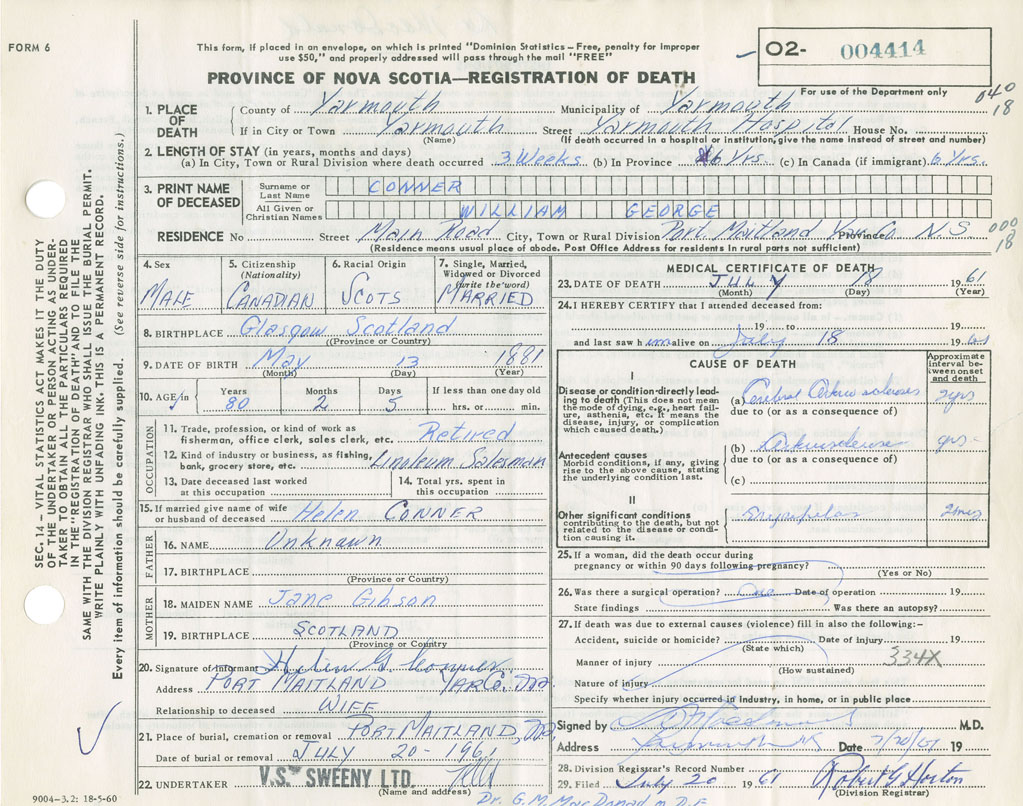 FORM 6
This form, if placed in an envelope, on which is printed "Dominion Statistics – Free, penalty for improper
use $50," and properly addressed will pass through the mail "FREE"
02- 004414
For use of the Department only
PROVINCE OF NOVA SCOTIA—REGISTRATION OF DEATH
040
18
1. PLACE OF DEATH County of Yarmouth Municipality of Yarmouth
If in City or Town Yarmouth Street Yarmouth Hospital House No.
(Name) (If death occurred in a hospital or institution, give the name instead of street and number)
2. LENGTH OF STAY (in years, months and days)
(a) In City, Town or Rural Division where death occurred 3 Weeks (b) In Province 6 Yrs (c) In Canada (if immigrant) 6 Yrs.
3. PRINT NAME OF DECEASED
Surname or Last Name CONNER
All Given or Christian Names WILLIAM GEORGE
RESIDENCE No Street Main Road City, Town or Rural Division Port Maitland Yar Co Province N.S
000
18
(Residence means usual place of abode. Post Office Address for residents in rural parts not sufficient)
4. Sex MALE
5. Citizenship (Nationality) CANADIAN
6. Racial Origin SCOTS
7. Single, Married, Widowed or Divorced (write the word) MARRIED
8. BIRTHPLACE Glasgow Scotland
(Province or Country)
9. DATE OF BIRTH May 13 1881
(Month) (Day) (Year)
10. AGE in Years 80 Months 2 Days 5 If less than one day old hrs. or min.
OCCUPATION
11. Trade, profession, or kind of work as
fisherman, office clerk, sales clerk, etc. Retired
12. Kind of industry or business, as fishing,
bank, grocery store, etc. Linoleum Salesman
13. Date deceased last worked
at this occupation
14. Total yrs. spent in
this occupation
15. If married give name of wife
or husband of deceased Helen CONNER
FATHER
16. NAME Unknown
17. BIRTHPLACE
(Province or Country)
MOTHER
18. MAIDEN NAME Jane Gibson
19. BIRTHPLACE SCOTLAND
(Province or Country)
20. Signature of informant Helen G Conner
Address PORT MAITLAND YAR Co.
Relationship to deceased WIFE
21. Place of burial, cremation or removal PORT MAITLAND,
Date of burial or removal JULY 20-1961
22. UNDERTAKER V.S. SWEENY LTD.
(Name and address)
9004–3.2: 18-5-60
MEDICAL CERTIFICATE OF DEATH
23. DATE OF DEATH JULY 18 1961
(Month) (Day) (Year)
24. I HEREBY CERTIFY that I attended deceased from:
19 to 19
and last saw him alive on July 18 1961
CAUSE OF DEATH
Approximate interval between onset and death
I
Disease or condition directly leading to death (This does not mean the mode of dying, e.g., heart failure, asthenia, etc. It means the disease, injury, or complication which caused death.)
(a) Cerebral Arteriosclerosis 2 yrs
due to (or as a consequence of)
Antecedent causes
Morbid conditions, if any, giving rise to the above cause, stating the underlying condition last.
(b) yrs
due to (or as a consequence of)
(c)
II
Other significant conditions
contributing to the death, but not related to the disease or condition causing it.
Erysipelas
25. If a woman, did the death occur during
pregnancy or within 90 days following pregnancy?
(Yes or No)
26. Was there a surgical operation? Date of operation 19
State findings Was there an autopsy?
27. If death was due to external causes (violence) fill in also the following:–
Accident, suicide or homicide? Date of injury 19
(State which)
334X
Manner of injury
(How sustained)
Nature of injury
Specify whether injury occurred in industry, in home, or in public place
Signed by M.D.
Address Yarmouth NS Date 7/20/61 19
28. Division Registrar's Record Number
29. Filed July 20 1961 Robert G Horton
(Division Registrar)
Dr. G. M. MacDonald
SEC. 14 – VITAL STATISTICS ACT MAKES IT THE DUTY
OF THE UNDERTAKER OR PERSON ACTING AS UNDER-
TAKER TO OBTAIN ALL THE PARTICULARS REQUIRED
IN THE "REGISTRATION OF DEATH" AND TO FILE THE
SAME WITH THE DIVISION REGISTRAR WHO SHALL ISSUE THE BURIAL PERMIT.
WRITE PLAINLY WITH UNFADING INK. THIS IS A PERMANENT RECORD.
Every item of information should be carefully supplied. (See reverse side for instructions.)